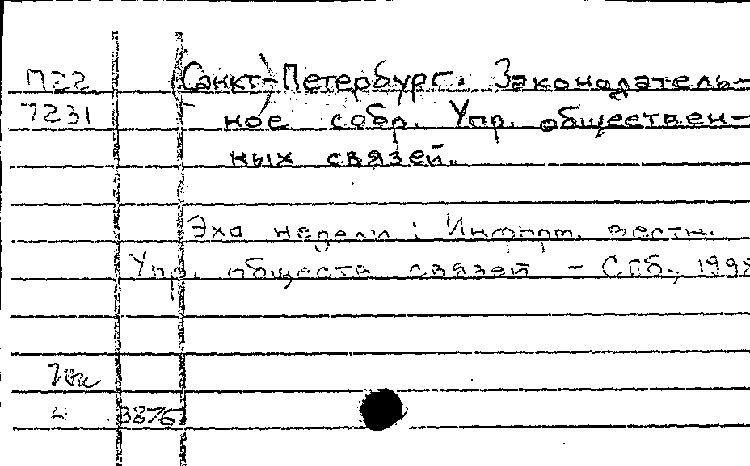 П22 Санкт-Петербург. Законодатель-
7231 ное собр. Упр. обществен-
ных связей.
Эхо недели : Информ. вестн.
Упр. обществ связей - СПб., 1998
3876